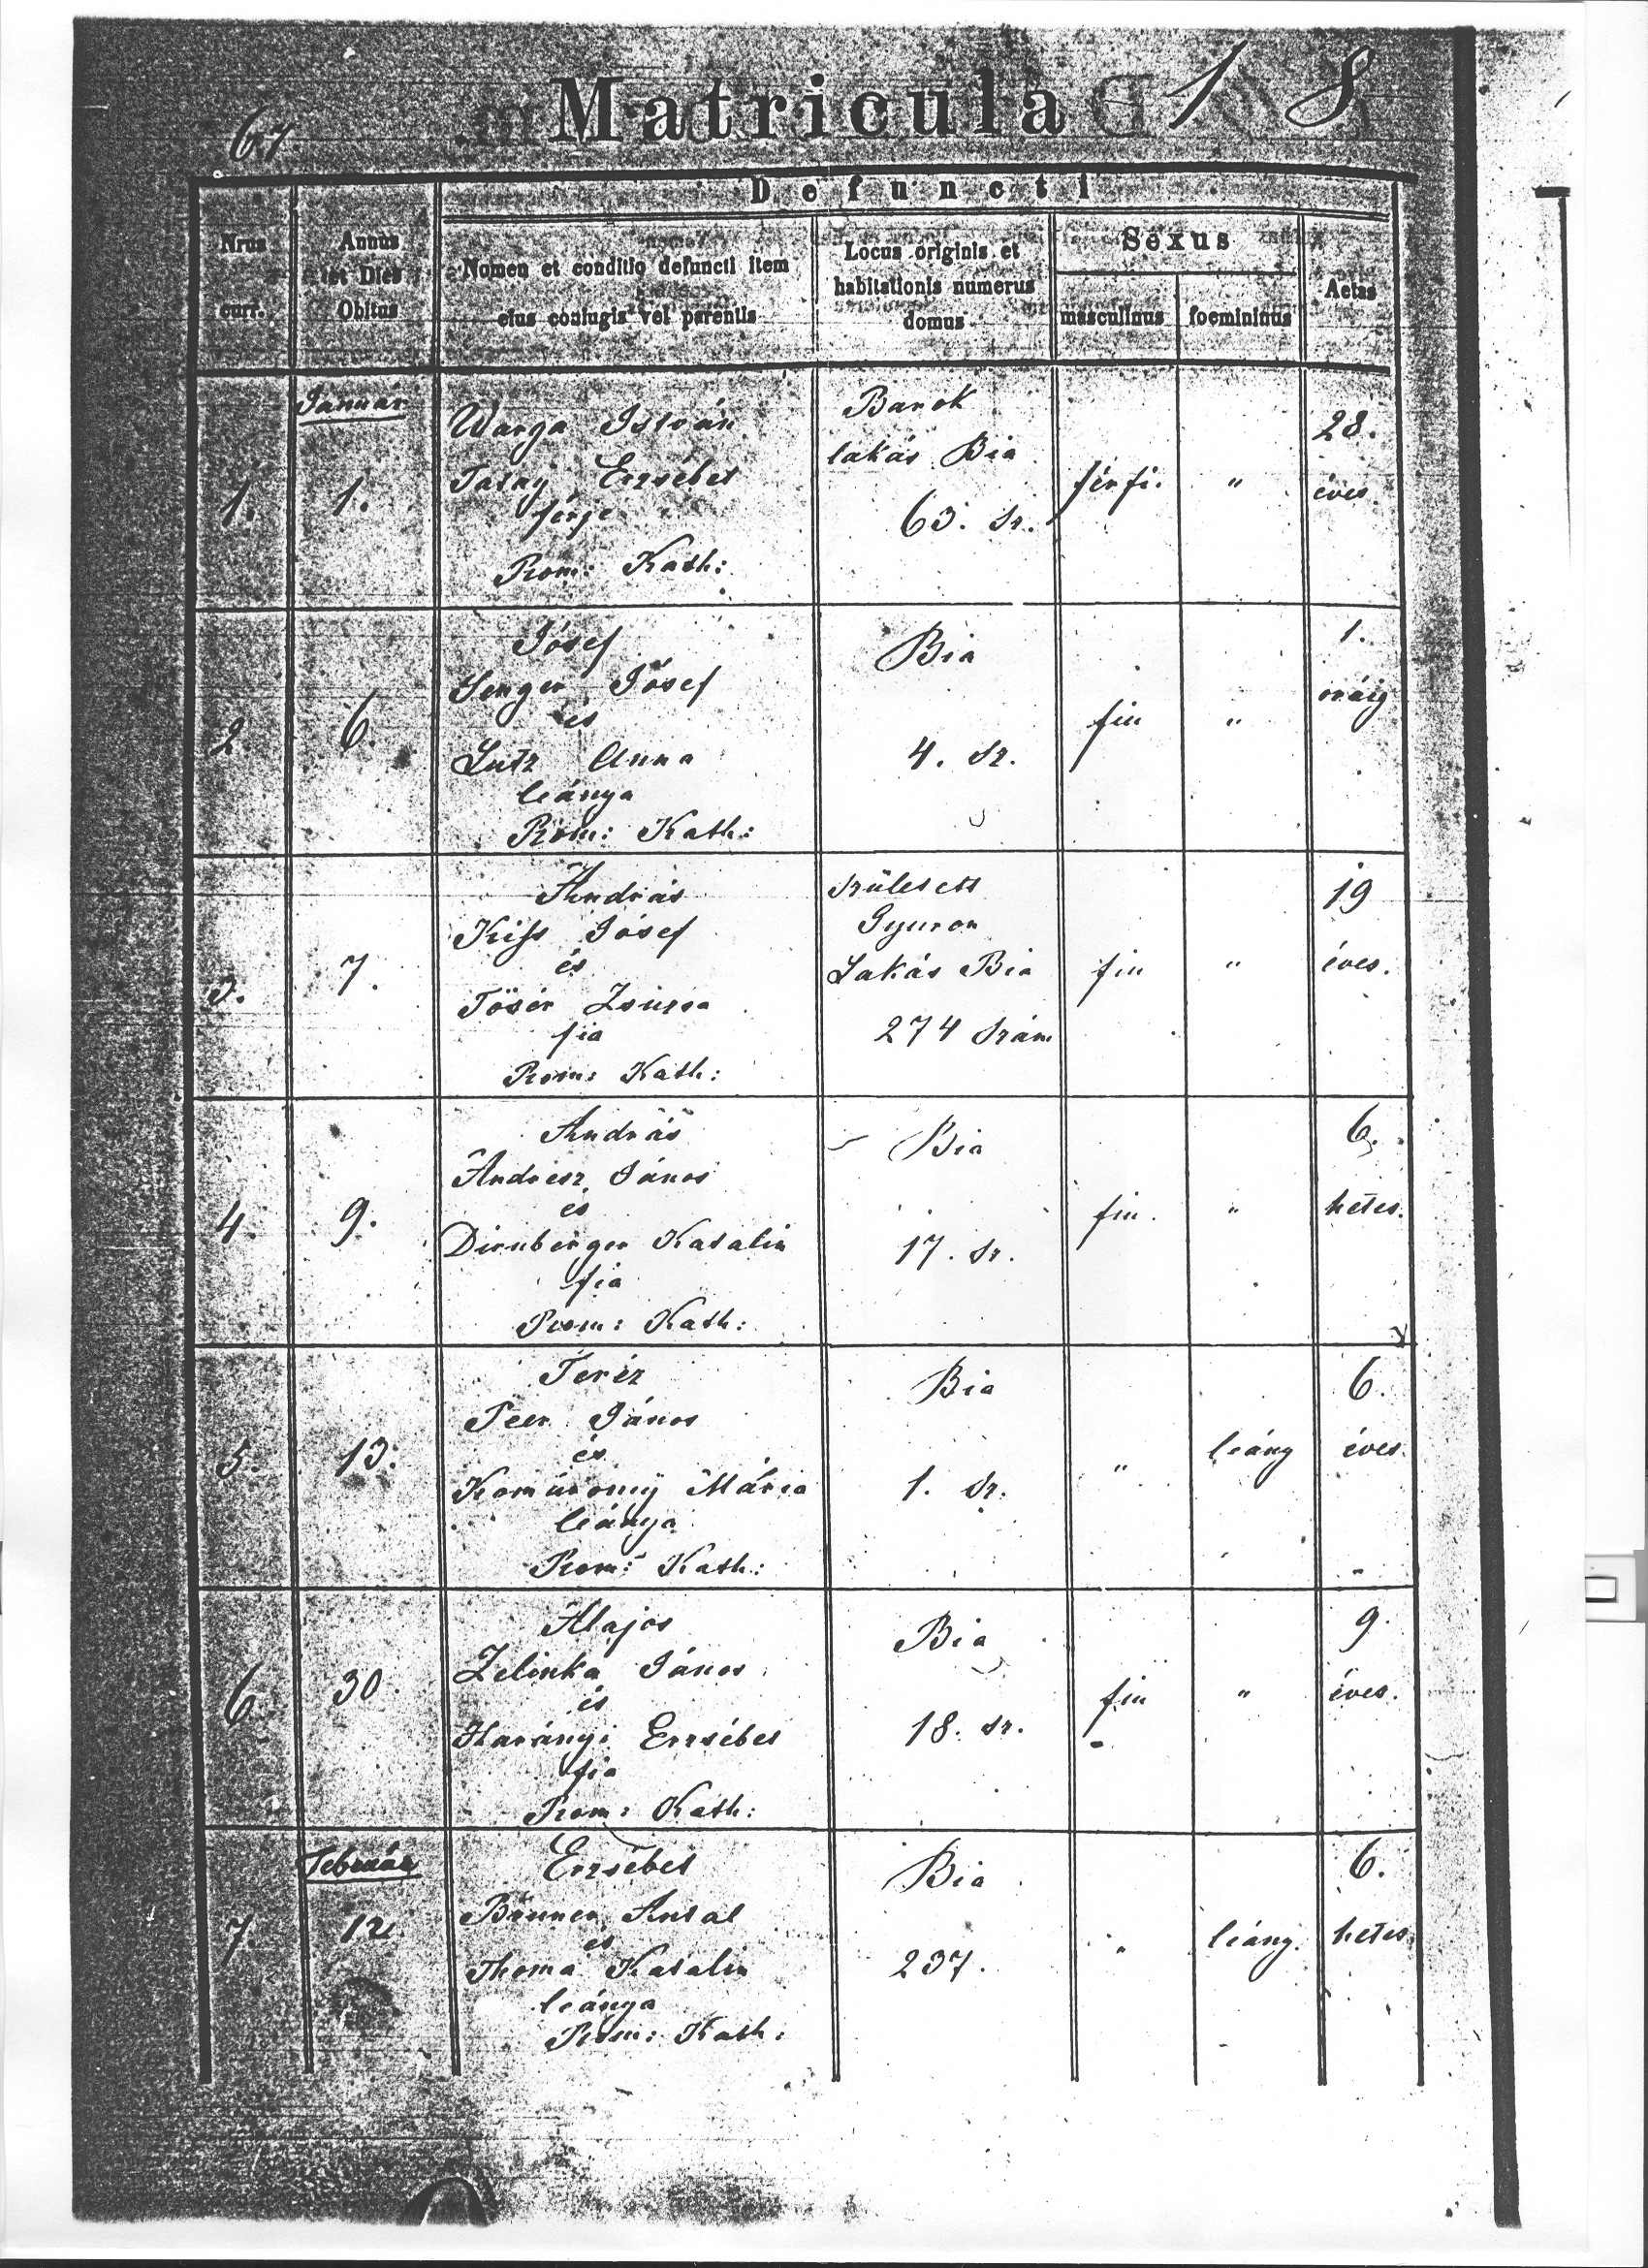 67.
Matricula 1 8
Defuncti
Nrus curr.
Annus et Dies Obitus
Nomen et conditio defuncti item eius coniugis vel parentis
Locus originis et habitationis numerus domus
Sexus
masculinus
foemininus
Aetas
Január
1.
1.
Warga István
Erzsébet
férje
Rom: Kath:
Barok
lakás Bia
63. sz.
férfi.
"
28.
éves.
2
6.
Jósef
Senger Jósef
és
Lutz Anna
leánya
Rom: Kath:
Bia
4. sz.
fiu
"
1.
óráig
3.
7.
András
Kiss Jósef
és
Tösér Zsuzsa
fia
Rom: Kath:
született
Gyuron
Lakás Bia
274 szám
fiu
"
19
éves.
4.
9.
András
Andresz János
és
Dirnberger Katalin
fia
Rom: Kath:
Bia
17. sz.
fiu.
"
6.
hetes.
5.
13.
Teréz
Peer János
és
Komáromÿ Mária
leánya
Rom: Kath:
Bia
1. sz.
"
leány
6.
éves.
6.
30.
Alajos
Zelinka János
és
Harányi Erzsébet
fia
Rom: Kath:
Bia
18. sz.
fiu
"
9.
éves.
Február
7.
12.
Erzsébet
Brunner Antal
és
Thoma Katalin
leánya
Rom: Kath:
Bia
237.
"
leány.
6.
hetes